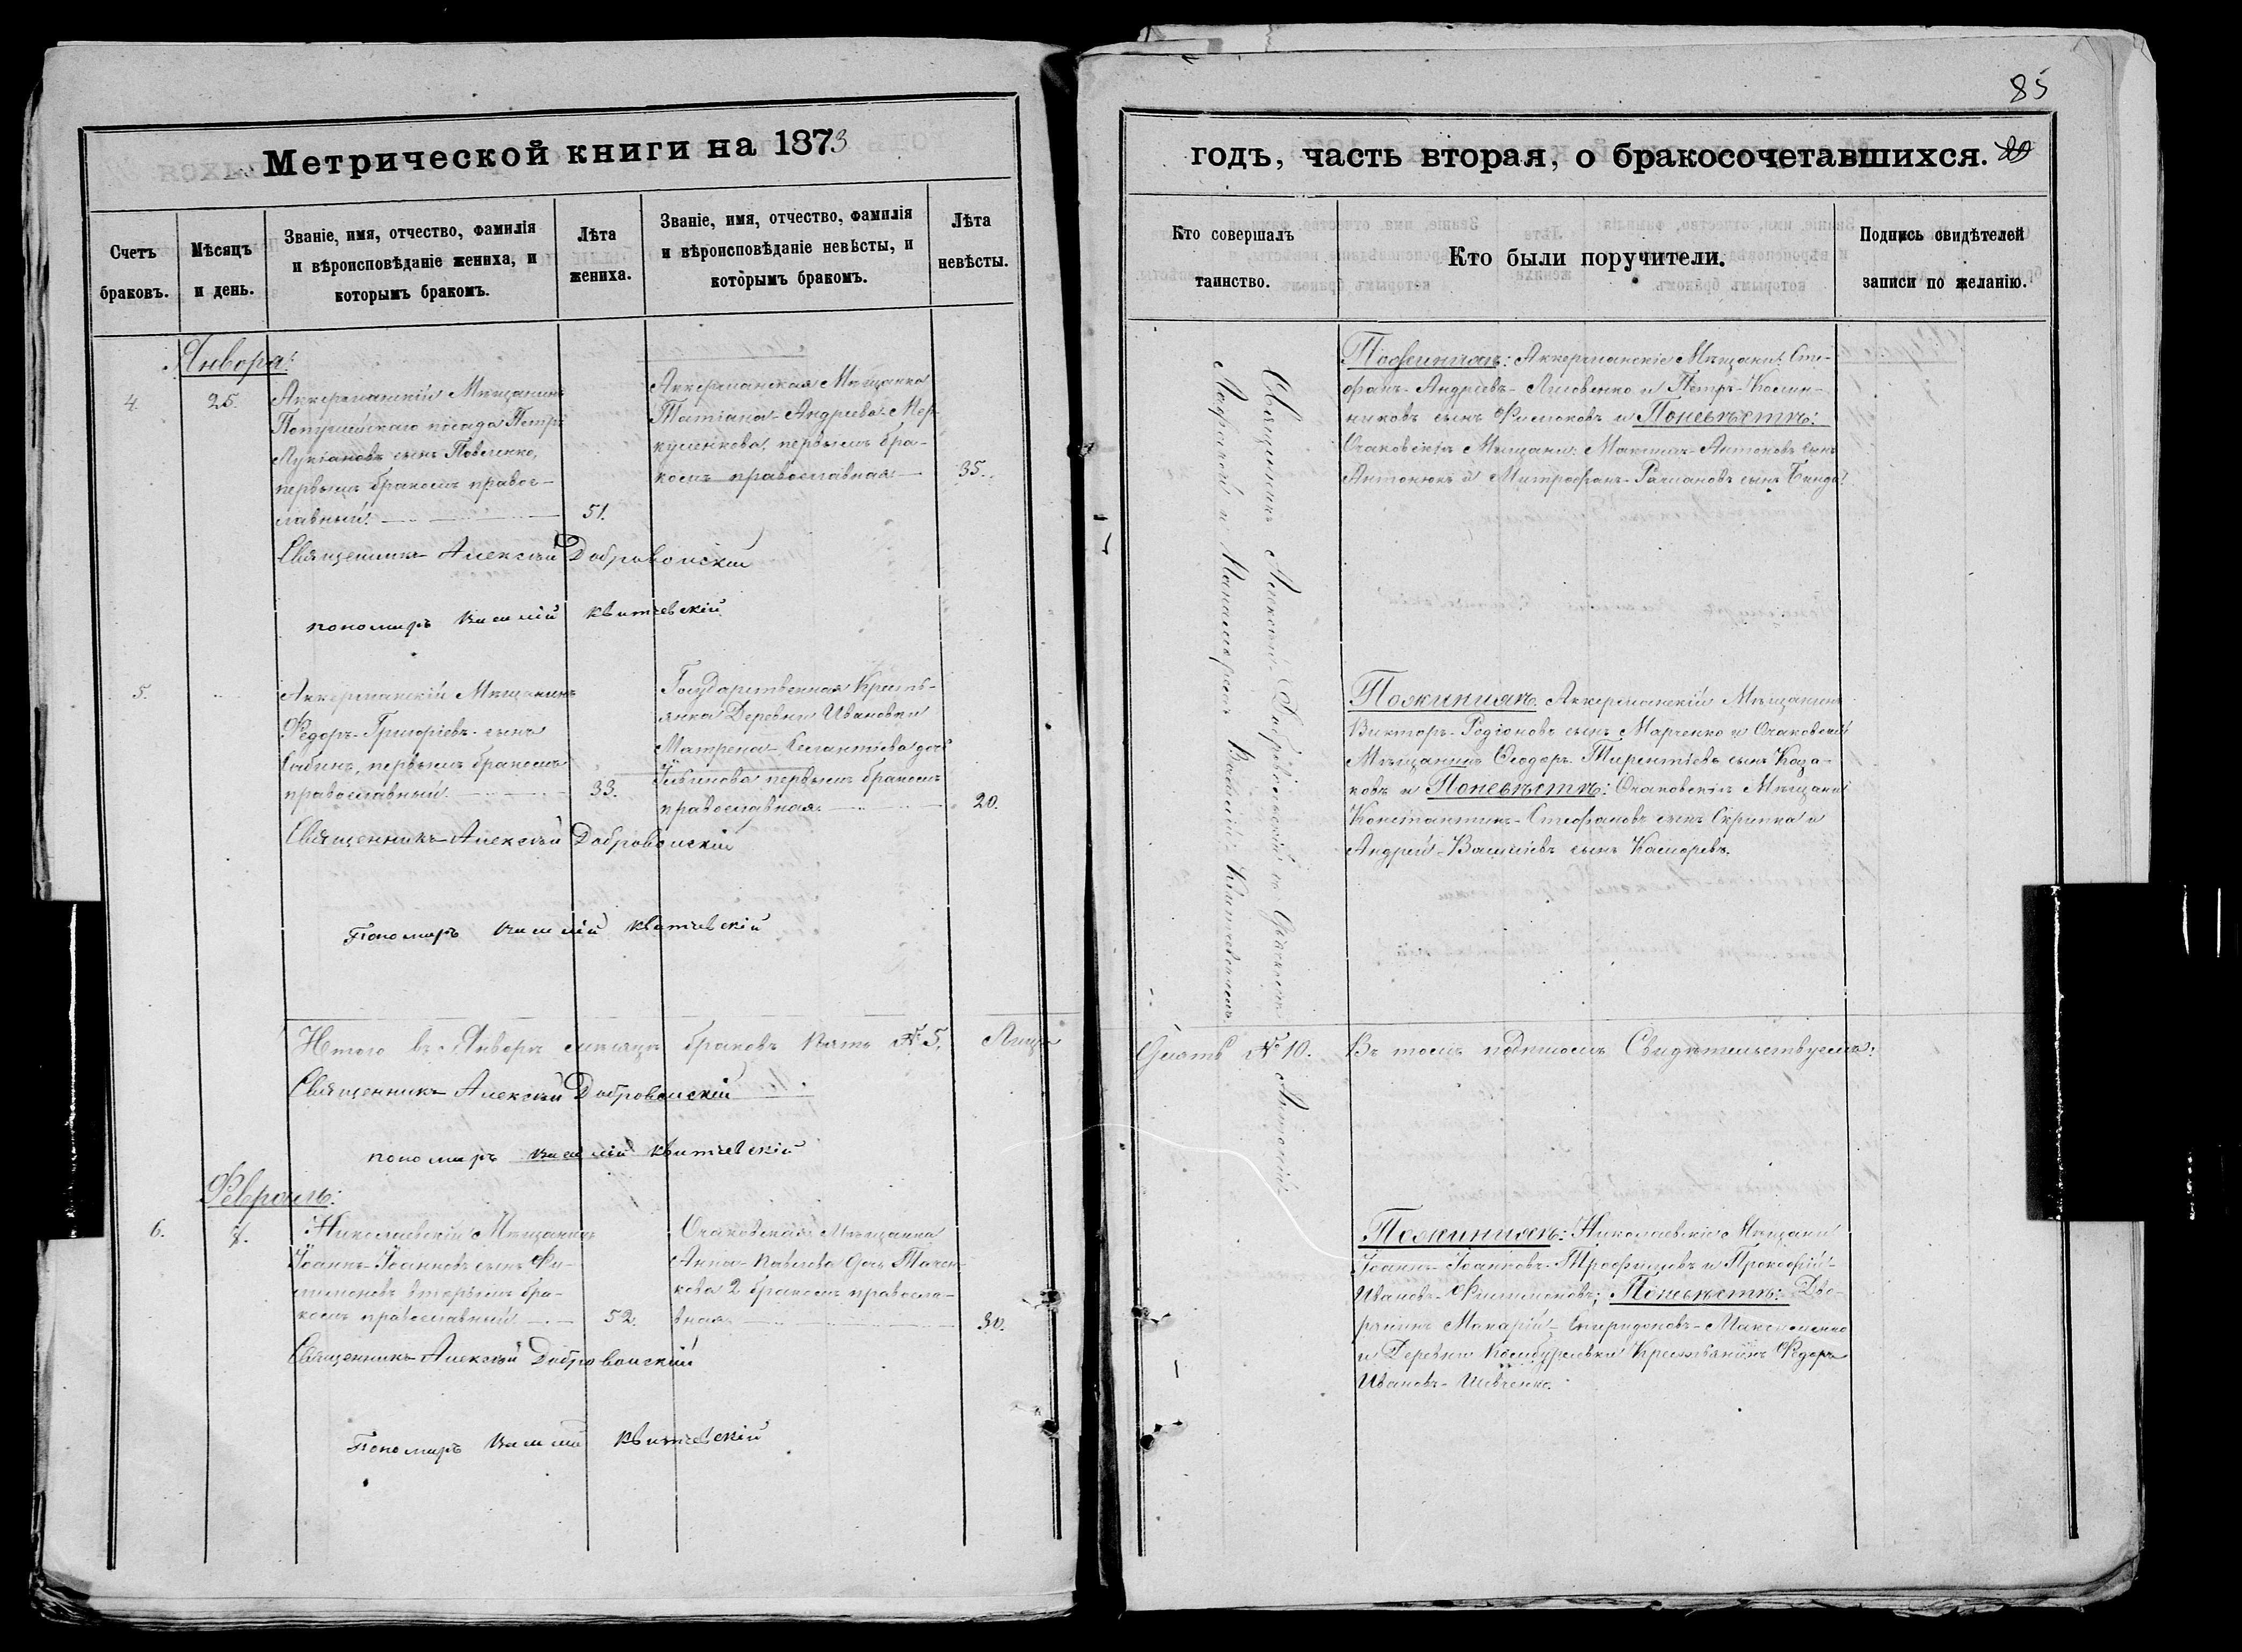 85
Метрической книги на 1873
годъ, часть вторая, о бракосочетавшихся.
20
Счетъ браковъ.
Мѣсяцъ и день.
Званіе, имя, отчество, фамилія
и вѣроисповѣданіе жениха, и
которымъ бракомъ.
Лѣта жениха.
Званіе, имя, отчество, фамилія
и вѣроисповѣданіе невѣсты, и
которымъ бракомъ.
Лѣта невѣсты.
Кто совершалъ таинство.
Кто были поручители.
Подпись свидѣтелей записи по желанію.
Января:
4.
25.
Аккерманскій Мѣщанинъ
посада Петръ
Лукіановъ сынъ Павленко,
первымъ бракомъ правос-
лавный.
51.
Аккерманская Мѣщанка
Татіана Андреева Мер-
куленкова, первымъ бра-
комъ православная
35.
Священникъ Алексѣй Добровольскій
пономарь Василій Квитчевскій
5.
Аккерманскій Мѣщанинъ
Ѳедоръ Григорієвъ сынъ
первымъ бракомъ
православный.
33.
Государственная Кресть-
янка Деревни Ивановки
Матрена дочь
первымъ бракомъ
православная.
20.
Священникъ Алексѣй Добровольскій
Пономарь Василій Квитчевскій
Итого въ Январѣ мѣсяцѣ браковъ пять № 5. Лицъ
Священникъ Алексѣй Добровольскій
пономарь Василій Квитчевскій
Февраль:
6.
4.
Николаевскій Мѣщанинъ
Іоаннъ Іоанновъ сынъ Фи-
лимоновъ вторымъ бра-
комъ православный
52.
Очаковская Мѣщанка
Анна Павлова дочь Ткачен-
кова 2 бракомъ правосла-
вная
30.
Священникъ Алексѣй Добровольскій
Пономарь Василій Квитчевскій
Священникъ Алексѣй Добровольскій съ Діакономъ
и Пономаремъ Василіемъ Квитчевскимъ.
По женихѣ: Аккерманскіе Мѣщани: Сте-
фанъ Андреевъ Лисовенко и Петръ
сынъ и По невѣстѣ:
Очаковскіе Мѣщани: Максимъ Антоновъ сынъ
Антонюкъ и Митрофанъ сынъ
По женихѣ Аккерманскій Мѣщанинъ
Викторъ Родіоновъ сынъ Марченко и Очаковскій
Мѣщанинъ Ѳеодоръ Терентіевъ сынъ Коза-
ковъ и По невѣстѣ: Очаковскіе Мѣщани
Константинъ Стефановъ сынъ Скрипка и
Андрей Василіевъ сынъ
десять № 10. Въ томъ подписомъ Свидѣтельствуемъ:
По женихѣ: Николаевскіе Мѣщани
Іоаннъ Іоанновъ Трофимовъ и Прокофій
Ивановъ Филимоновъ; По невѣстѣ: Дво-
рянинъ Макарій Спиридоновъ Максименко
и Деревни Крестьянинъ Ѳедоръ
Ивановъ Шевченко.